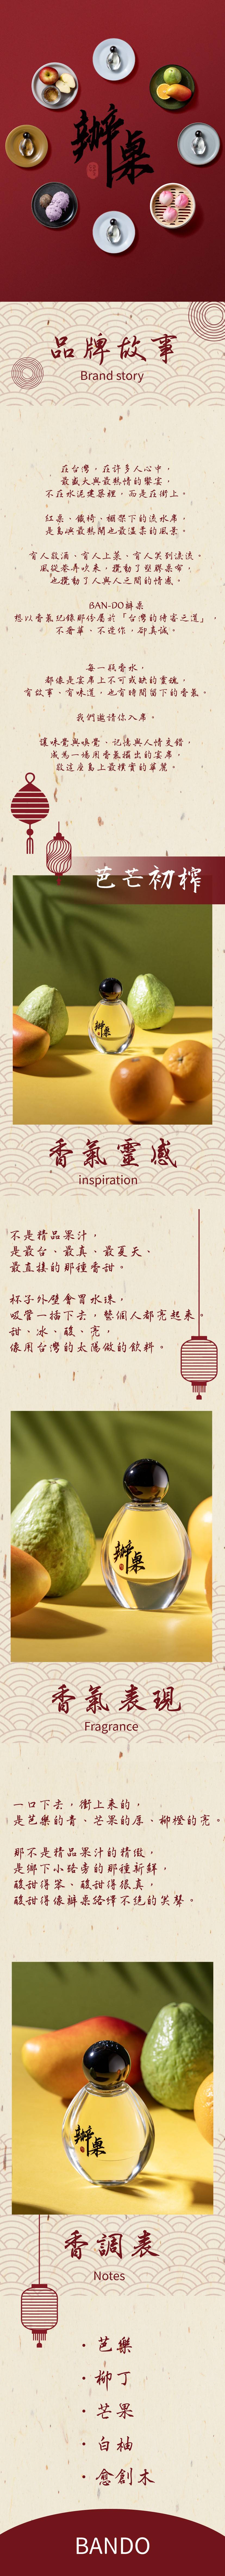 辦桌
品牌故事
Brand story
在台灣，在許多人心中，
最盛大與最熱情的饗宴，
不在水泥建築裡，而是在街上。
紅桌、鐵椅、棚架下的流水席，
是島嶼最熱鬧也最溫柔的風景。
有人敬酒、有人上菜、有人笑到流淚。
風從巷弄吹來，攪動了塑膠桌布，
也攪動了人與人之間的情感。
BAN-DO辦桌
想以香氣紀錄那份屬於「台灣的待客之道」，
不奢華、不造作，卻真誠。
每一瓶香水，
都像是宴席上不可或缺的靈魂，
有故事、有味道，也有時間留下的香氣。
我們邀請你入席。
讓味覺與嗅覺、記憶與人情交錯，
成為一場用香氣擺出的宴席，
敬這座島上最樸實的華麗。
芭芒初榨
辦桌
香氣靈感
inspiration
不是精品果汁，
是最台、最真、最夏天、
最直接的那種香甜。
杯子外壁會冒水珠，
吸管一插下去，整個人都亮起來。
甜、冰、酸、亮，
像用台灣的太陽做的飲料。
辦桌
香氣表現
Fragrance
一口下去，衝上來的，
是芭樂的青、芒果的厚、柳橙的亮。
那不是精品果汁的精緻，
是鄉下小路旁的那種新鮮，
酸甜得笨、酸甜得很真，
酸甜得像辦桌絡繹不絕的笑聲。
辦桌
香調表
Notes
· 芭樂
· 柳丁
· 芒果
· 白柚
· 癒創木
BANDO